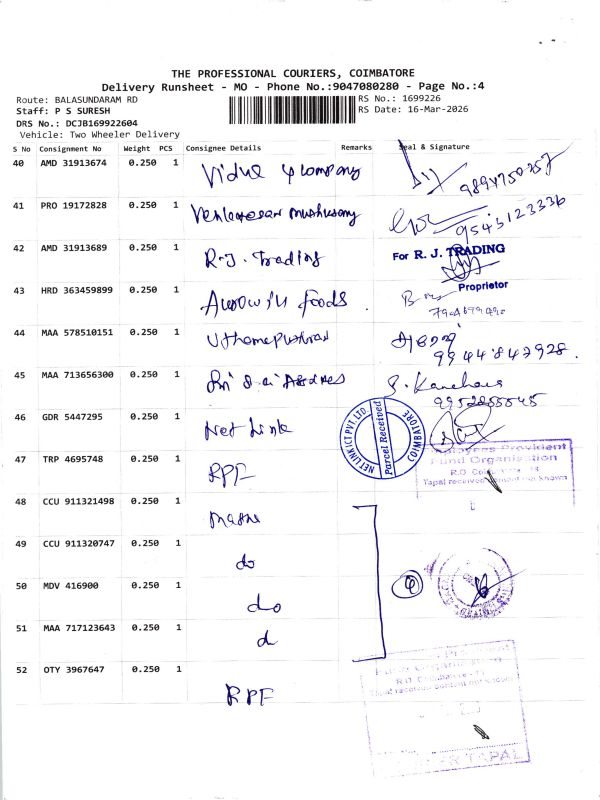 THE PROFESSIONAL COURIERS, COIMBATORE
Delivery Runsheet - MO - Phone No.:9047080280 - Page No.:4
Route: BALASUNDARAM RD
RS No.: 1699226
Staff: P S SURESH
RS Date: 16-Mar-2026
DRS No.: DCJB169922604
Vehicle: Two Wheeler Delivery
S No Consignment No Weight PCS Consignee Details Remarks Seal & Signature
40 AMD 31913674 0.250 1
41 PRO 19172828 0.250 1 9543123336
42 AMD 31913689 0.250 1 R.J. Trading For R. J. TRADING
Proprietor
43 HRD 363459899 0.250 1 foods
44 MAA 578510151 0.250 1 9944847928.
45 MAA 713656300 0.250 1
46 GDR 5447295 0.250 1 Net Link NET LINK ICT PVT. LTD. Parcel Received COIMBATORE
47 TRP 4695748 0.250 1 RPF Employees Provident
Fund Organisation
R.O. Coimbatore - 18
Tapal received content not known
48 CCU 911321498 0.250 1
49 CCU 911320747 0.250 1 do
50 MDV 416900 0.250 1 do 4
51 MAA 717123643 0.250 1 d
52 OTY 3967647 0.250 1 RPF
Fund Organisation
R.O. Coimbatore - 18
Tapal received content not known
TAPAL